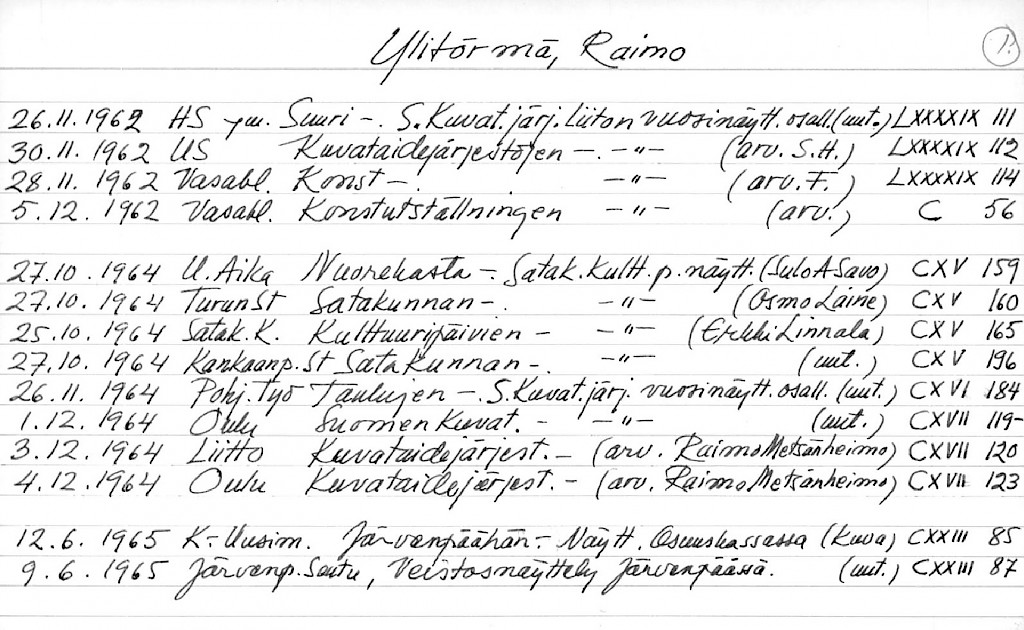 Ylitörmä, Raimo 1.
26.11.1962 HS ym. Suuri -. S.Kuvat.järj.liiton vuosinäytt. osall.(uut.) LXXXXIX 111
30.11.1962 US Kuvataidejärjestöjen -. -"- (arv. S.H.) LXXXXIX 112
28.11.1962 Vasabl. Konst -. -"- (arv. F.) LXXXXIX 114
5.12.1962 Vasabl. Konstutställningen -"- (arv.) C 56
27.10.1964 U.Aika Nuorekasta -. Satak.Kultt.p.näytt.(Sulo A Savo) CXV 159
27.10.1964 TurunSt Satakunnan -. -"- (Osmo Laine) CXV 160
25.10.1964 Satak.K. Kulttuuripäivien - -"- (Erkki Linnala) CXV 165
27.10.1964 Kankaanp.St Satakunnan -. -"- (uut.) CXV 196
26.11.1964 Pohj.Työ Taulujen -. S.Kuvat.järj. vuosinäytt. osall. (uut.) CXVI 184
1.12.1964 Oulu Suomen Kuvat. - -"- (uut.) CXVII 119-
3.12.1964 Liitto Kuvataidejärjest. - (arv. Raimo Metsänheimo) CXVII 120
4.12.1964 Oulu Kuvataidejärjest. - (arv. Raimo Metsänheimo) CXVII 123
12.6.1965 K-Uusim. Järvenpäähän -. Näytt. Osuuskassassa (kuva) CXXIII 85
9.6.1965 Järvenp.Seutu, Veistosnäyttely Järvenpäässä. (uut.) CXXIII 87